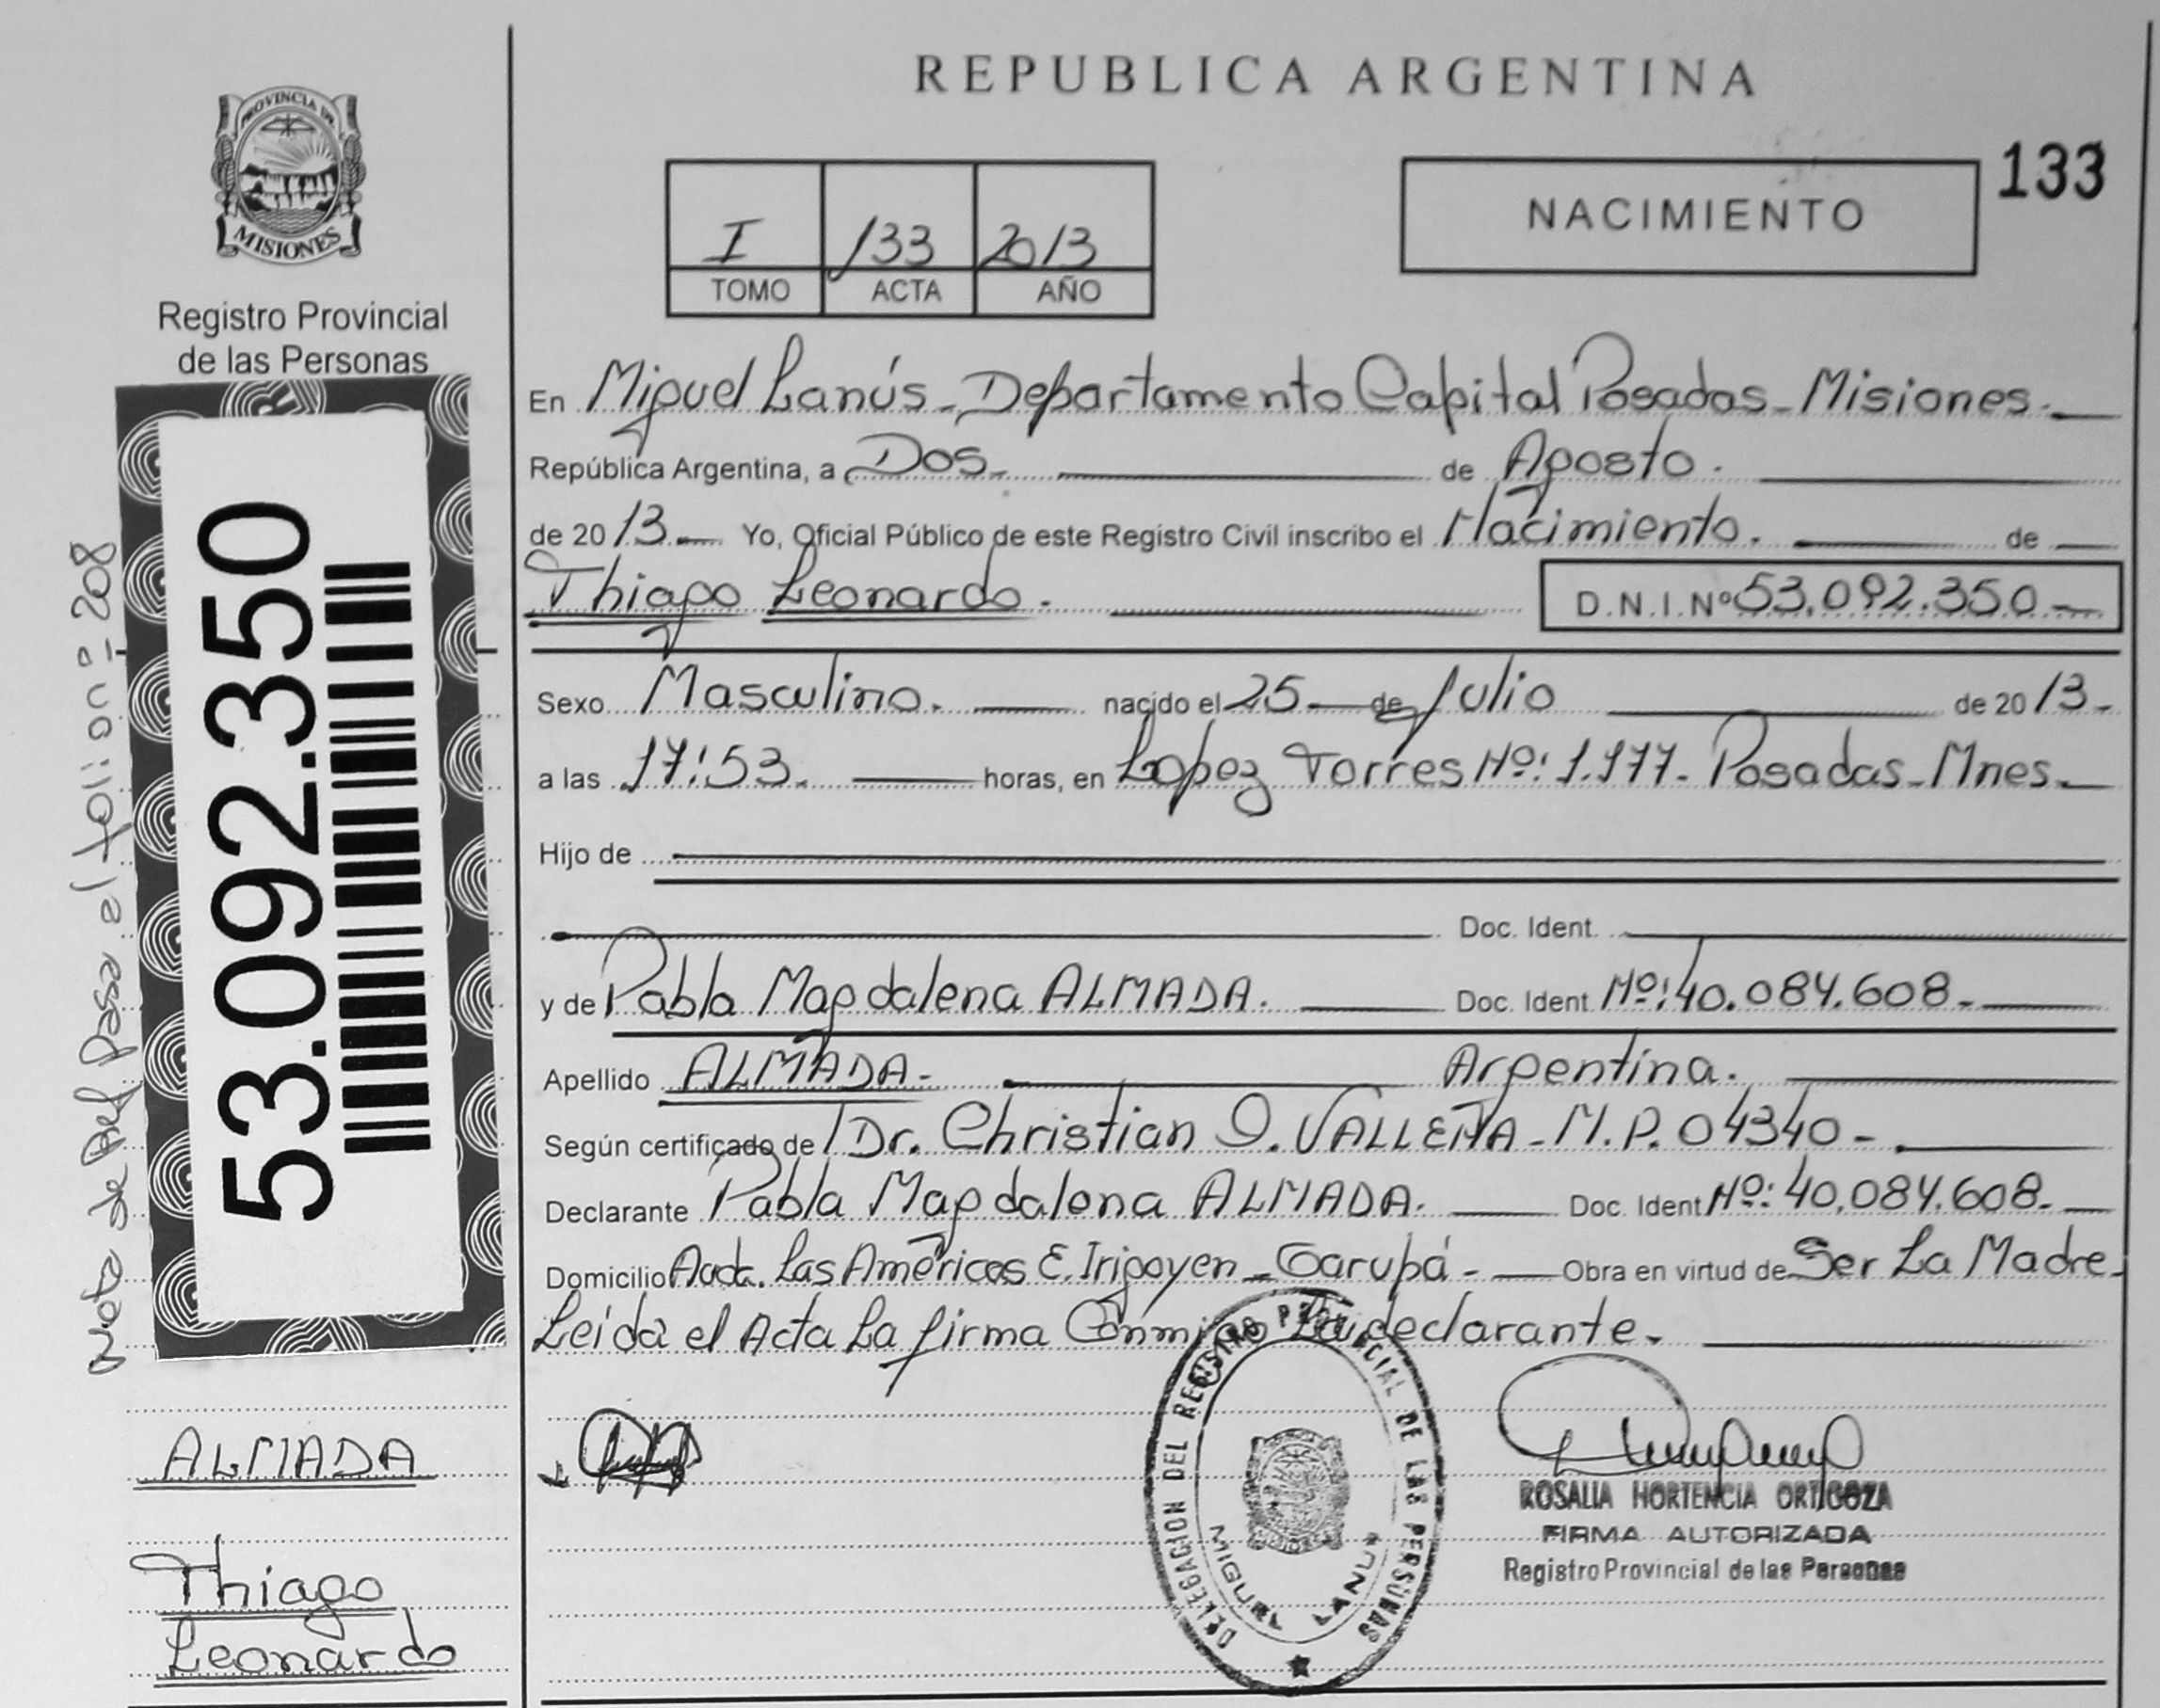 REPUBLICA ARGENTINA
PROVINCIA DE
MISIONES
Registro Provincial
de las Personas
I 133 2013
TOMO ACTA AÑO
NACIMIENTO
133
En Miguel Lanús - Departamento Capital Posadas - Misiones.
República Argentina, a Dos. de Agosto.
de 2013 Yo, Oficial Público de este Registro Civil inscribo el Nacimiento. de
Thiago Leonardo. D.N.I.Nº 53.092.350
Sexo Masculino. nacido el 25 de Julio de 2013.
a las 17:53. horas, en Lopez Torres Nº: 1.177. Posadas - Mnes.
Hijo de
Doc. Ident.
y de Pabla Magdalena ALMADA. Doc. Ident Nº: 40.084.608.
Apellido ALMADA. Argentina.
Según certificado de Dr. Christian O. VALLEÑA - M.P. 04340 -
Declarante Pabla Magdalena ALMADA. Doc. Ident Nº: 40.084.608.
Domicilio Avda. Las Américas E. Irigoyen - Garupá - Obra en virtud de Ser La Madre
Leida el Acta La firma Conmigo La declarante.
53.092.350
Nota de Ref Pasa el folio nº 208
ALMADA
Thiago
Leonardo
DELEGACION DEL REGISTRO PROVINCIAL DE LAS PERSONAS
MIGUEL LANUS
ROSALIA HORTENCIA ORTIGOZA
FIRMA AUTORIZADA
Registro Provincial de las Personas